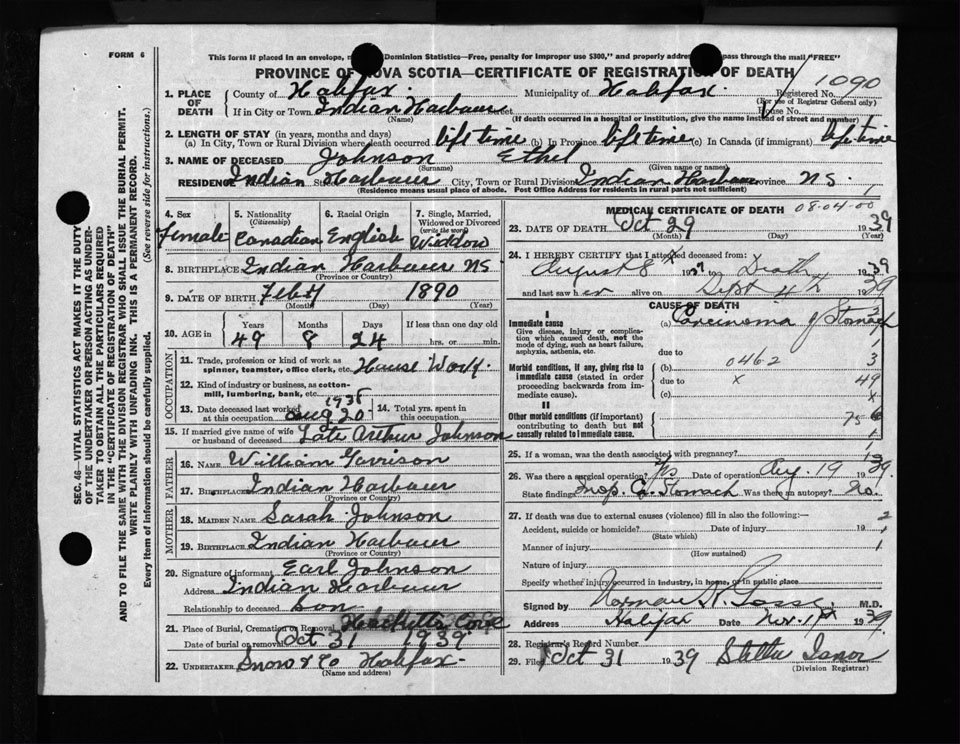 FORM 6
This form if placed in an envelope, Dominion Statistics—Free, penalty for improper use $300," and properly pass through the mail "FREE"
PROVINCE OF NOVA SCOTIA—CERTIFICATE OF REGISTRATION OF DEATH
1. PLACE OF DEATH County of Halifax. Municipality of Halifax. Registered No. 1090
(For use of Registrar General only)
If in City or Town Indian Harbour Street House No.
(Name) (If death occurred in a hospital or institution, give the name instead of street and number)
2. LENGTH OF STAY (in years, months and days)
(a) In City, Town or Rural Division where death occurred life time (b) In Province life time (c) In Canada (if immigrant) life time
3. NAME OF DECEASED Johnson Ethel
(Surname) (Given name or names)
RESIDENCE Indian Harbour City, Town or Rural Division Indian Harbour Province NS.
(Residence means usual place of abode. Post Office Address for residents in rural parts not sufficient) 1
4. Sex female
5. Nationality (Citizenship) Canadian
6. Racial Origin English
7. Single, Married, Widowed or Divorced (write the word) Widdow
8. BIRTHPLACE Indian Harbour NS
(Province or Country)
9. DATE OF BIRTH 1890
(Month) (Day) (Year)
10. AGE in Years 49 Months 8 Days 24 If less than one day old
hrs. or min.
OCCUPATION
11. Trade, profession or kind of work as spinner, teamster, office clerk, etc. House Work.
12. Kind of industry or business, as cotton-mill, lumbering, bank, etc.
13. Date deceased last worked at this occupation Aug 20 1938
14. Total yrs. spent in this occupation
15. If married give name of wife or husband of deceased Late Arthur Johnson
FATHER
16. NAME William Garrison
17. BIRTHPLACE Indian Harbour
(Province or Country)
MOTHER
18. MAIDEN NAME Sarah Johnson
19. BIRTHPLACE Indian Harbour
(Province or Country)
20. Signature of informant Earl Johnson
Address Indian Harbour
Relationship to deceased Son
21. Place of Burial, Cremation or Removal Hacketts Cove
Date of burial or removal Oct 31 1939
22. UNDERTAKER Snow & Co Halifax
(Name and address)
MEDICAL CERTIFICATE OF DEATH 08-04-00
23. DATE OF DEATH Oct 29 1939
(Month) (Day) (Year)
24. I HEREBY CERTIFY that I attended deceased from:
August 8 to Death 1939
and last saw her alive on Sept 4th 1939
CAUSE OF DEATH
I
Immediate cause
Give disease, injury or complication which caused death, not the mode of dying, such as heart failure, asphyxia, asthenia, etc.
(a) Carcinoma of Stomach
due to
Morbid conditions, if any, giving rise to immediate cause (stated in order proceeding backwards from immediate cause)
(b) 0462 3
due to x 49
(c) x
II
Other morbid conditions (if important) contributing to death but not causally related to immediate cause.
25. If a woman, was the death associated with pregnancy?
26. Was there a surgical operation? Yes Date of operation Aug. 19 1939
State findings Inop. Ca Stomach Was there an autopsy? No.
27. If death was due to external causes (violence) fill in also the following:—
Accident, suicide or homicide? Date of injury 19
(State which)
Manner of injury
(How sustained)
Nature of injury
Specify whether injury occurred in industry, in home, or in public place
Signed by Norman H. Gosse M.D.
Address Halifax Date Nov. 1st 1939.
28. Registrar's Record Number
29. Filed Oct 31 1939
(Division Registrar)
SEC. 46—VITAL STATISTICS ACT MAKES IT THE DUTY OF THE UNDERTAKER OR PERSON ACTING AS UNDERTAKER TO OBTAIN ALL THE PARTICULARS REQUIRED IN THE "CERTIFICATE OF REGISTRATION OF DEATH" AND TO FILE THE SAME WITH THE DIVISION REGISTRAR WHO SHALL ISSUE THE BURIAL PERMIT.
WRITE PLAINLY WITH UNFADING INK. THIS IS A PERMANENT RECORD.
Every item of information should be carefully supplied. (See reverse side for instructions.)